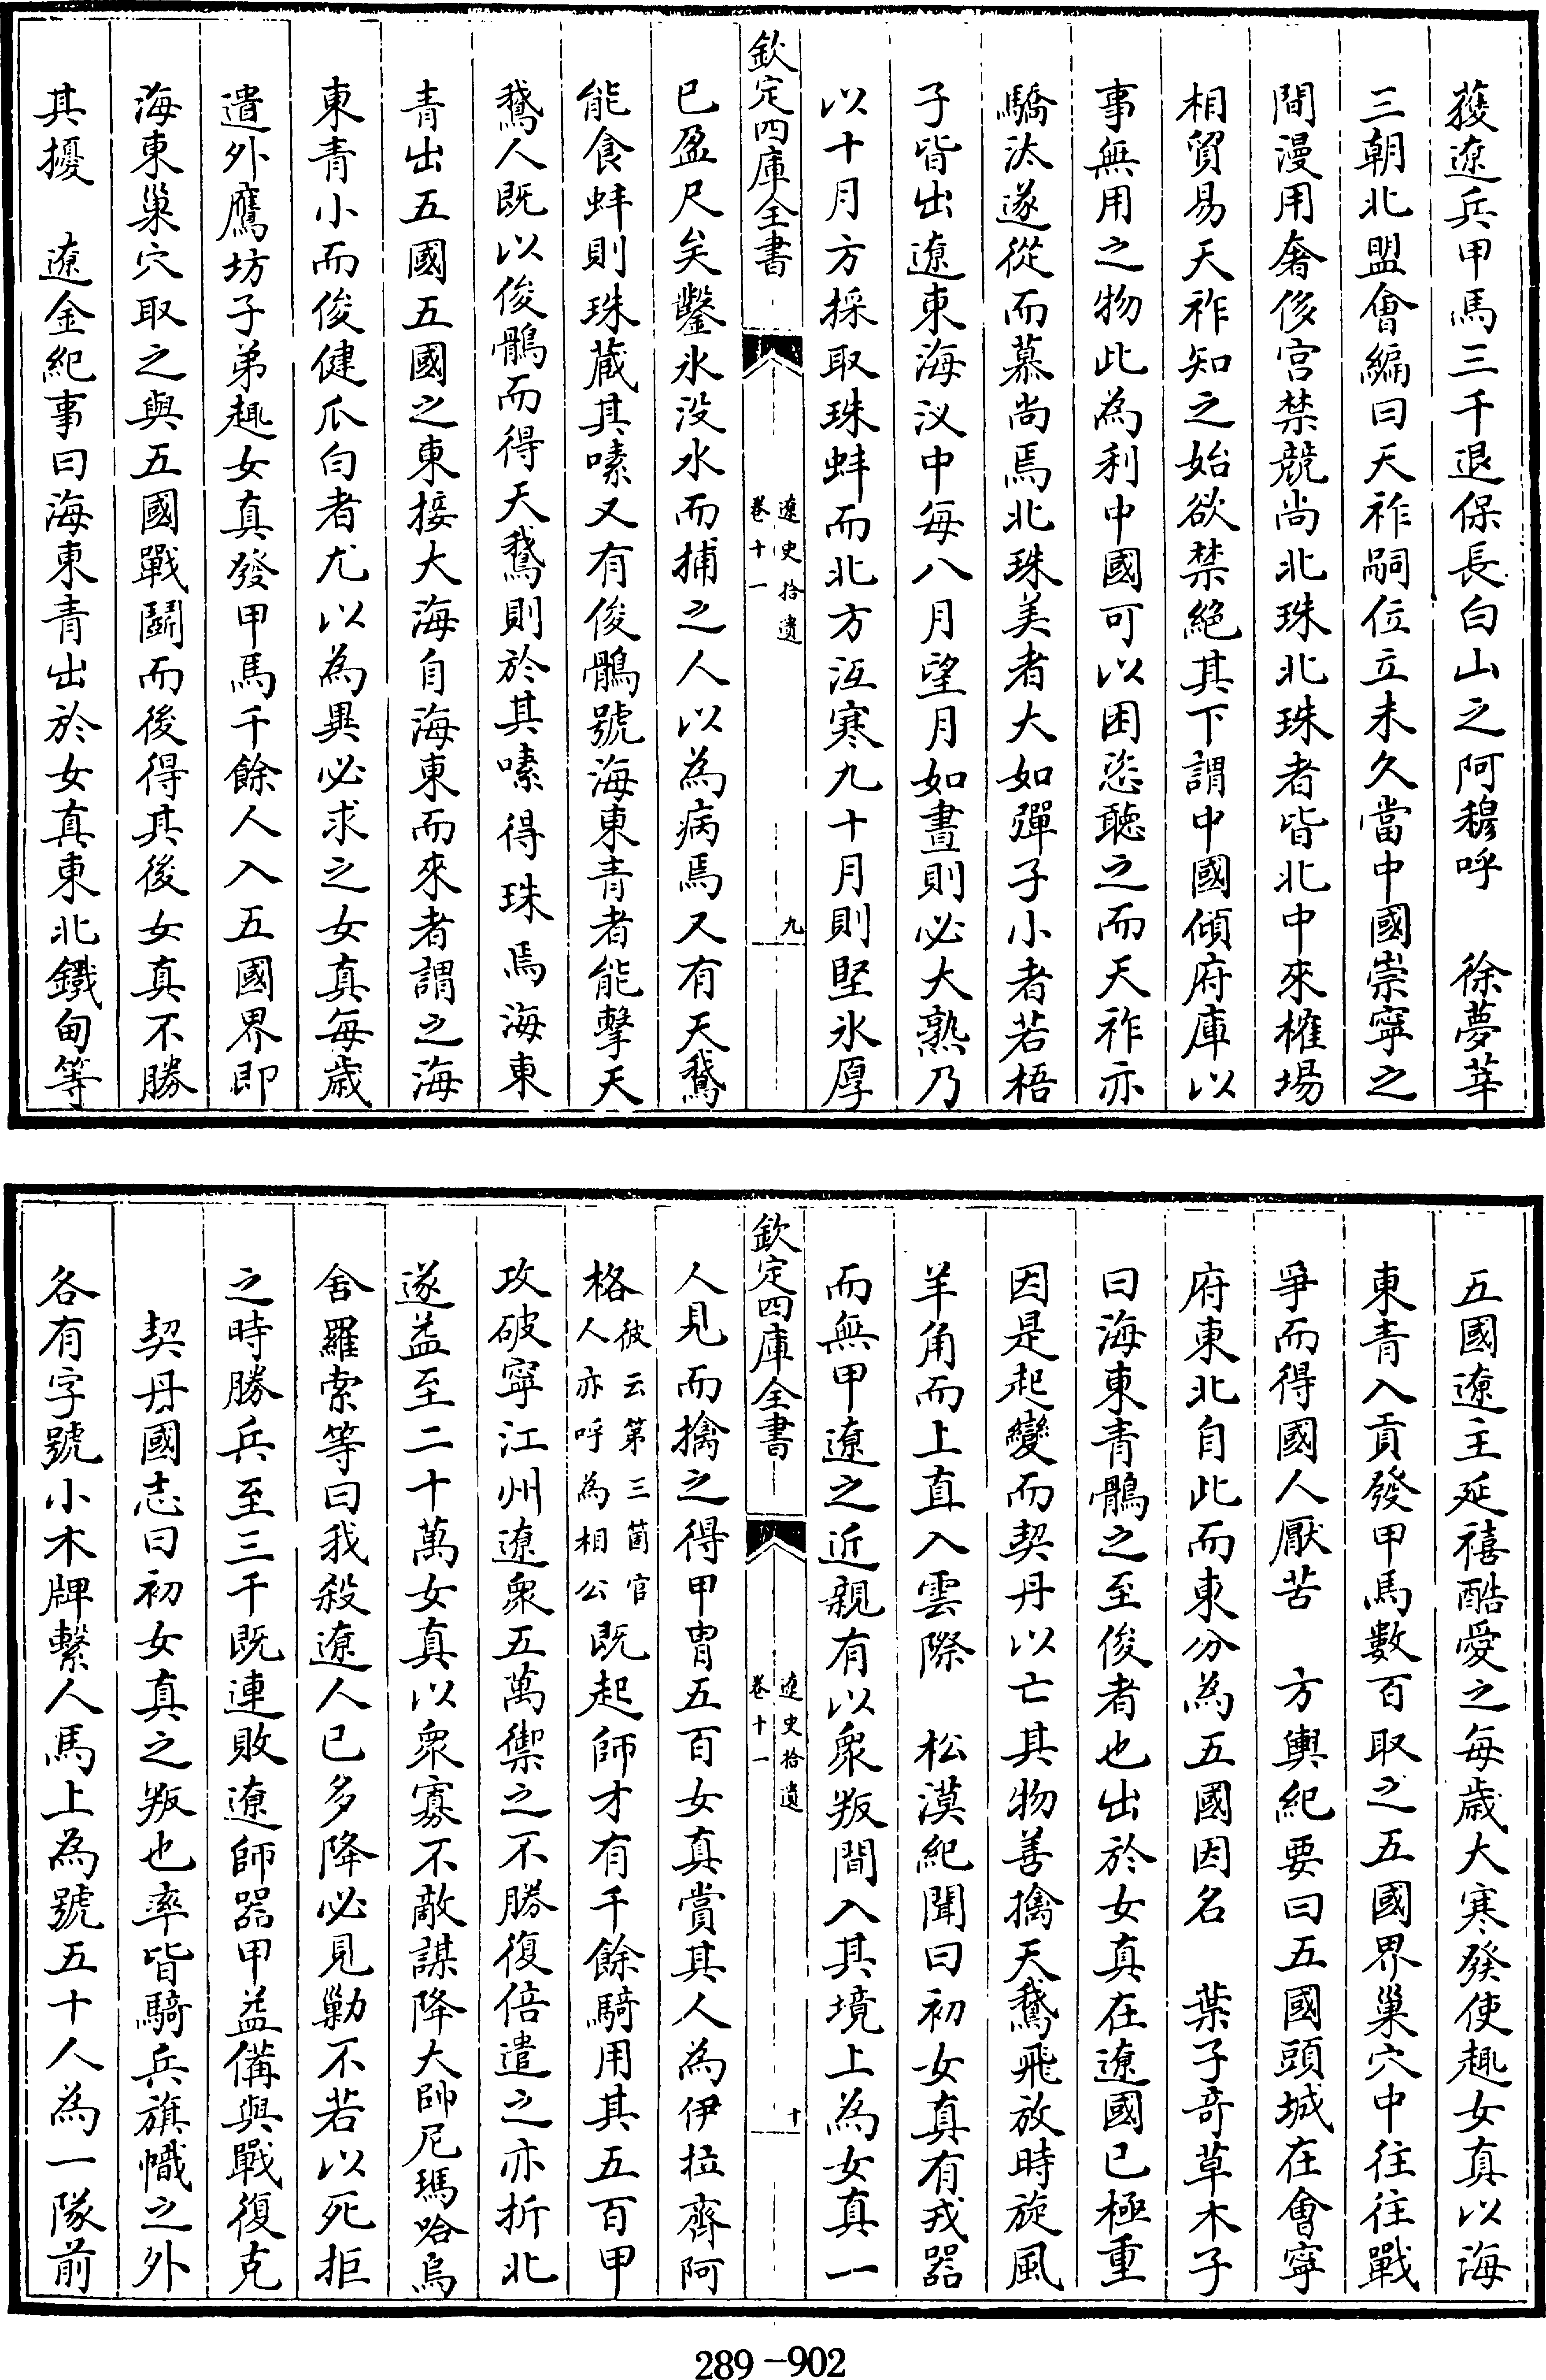 獲遼兵甲馬三千退保長白山之阿穆呼　徐夢莘
三朝北盟會編曰天祚嗣位立未久當中國崇寧之
間漫用奢侈宫禁競尚北珠北珠者皆北中來榷場
相貿易天祚知之始欲禁絶其下謂中國傾府庫以
事無用之物此為利中國可以困恣聽之而天祚亦
驕汰遂從而慕尚焉北珠美者大如彈子小者若梧
子皆出遼東海汊中每八月望月如晝則必大熟乃
以十月方採取珠蚌而北方沍寒九十月則堅氷厚
欽定四庫全書
遼史拾遺
卷十一
九
已盈尺矣鑿氷没水而捕之人以為病焉又有天鵝
能食蚌則珠蔵其嗉又有俊鶻號海東青者能擊天
鵝人既以俊鶻而得天鵝則於其嗉得珠焉海東
青出五國五國之東接大海自海東而來者謂之海
東青小而俊健爪白者尤以為異必求之女真每歳
遣外鷹坊子弟趣女真發甲馬千餘人入五國界即
海東巢穴取之與五國戰鬭而後得其後女真不勝
其擾　遼金紀事曰海東青出於女真東北鐵甸等
五國遼主延禧酷愛之每歳大寒發使趣女真以海
東青入貢發甲馬數百取之五國界巢穴中往往戰
爭而得國人厭苦　方輿紀要曰五國頭城在會寧
府東北自此而東分為五國因名　葉子竒草木子
曰海東青鶻之至俊者也出於女真在遼國已極重
因是起變而契丹以亡其物善擒天鵝飛放時旋風
羊角而上直入雲際　松漠紀聞曰初女真有戎器
而無甲遼之近親有以衆叛間入其境上為女真一
欽定四庫全書
遼史拾遺
卷十一
十
人見而擒之得甲冑五百女真賞其人為伊拉齊阿
格彼云第三箇官人亦呼為相公既起師才有千餘騎用其五百甲
攻破寧江州遼衆五萬禦之不勝復倍遣之亦折北
遂益至二十萬女真以衆寡不敵謀降大帥尼瑪哈烏
舍羅索等曰我殺遼人已多降必見勦不若以死拒
之時勝兵至三千既連敗遼師器甲益備與戰復克
契丹國志曰初女真之叛也率皆騎兵旗幟之外
各有字號小木牌繫人馬上為號五十人為一隊前
289-902